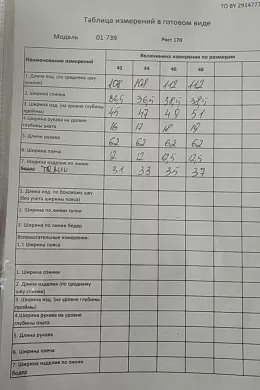 ТО BY 2914777
Таблица измерений в готовом виде
Модель 01-739 Рост 170
Наименование измерений Величинина измерения по размерам
42 44 46 48
1. Длина изд. (по среднему шву спинки) 108 108 112 112
2. Ширина спинки 36,5 36,5 38,5 38,5
3. Ширина изд. (на уровне глубины проймы) 45 47 49 51
4. Ширина рукава на уровне глубины оката 16 17 18 19
5. Длина рукава 62 62 62 62
6. Ширина плеча 12 12 12,5 12,5
7. Ширина изделия по линии бедер 31 33 35 37
1. Длина изд. по боковому шву (без учета ширины пояса)
2. Ширина по линии талии
3. Ширина по линии бедер
Вспомогательные измерения:
1.1 Ширина пояса
1. Ширина спинки
2. Длина изделия (по среднему шву спинки)
3 Ширина изд. (на уровне глубины проймы)
4 Ширина рукава на уровне глубины оката
5. Длина рукава
6. Ширина плеча
7. Ширина изделия по линии бедер